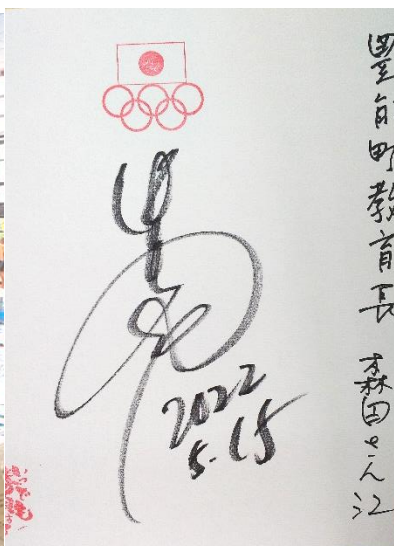 豊能町教育長 森田さん江
2022
5.15